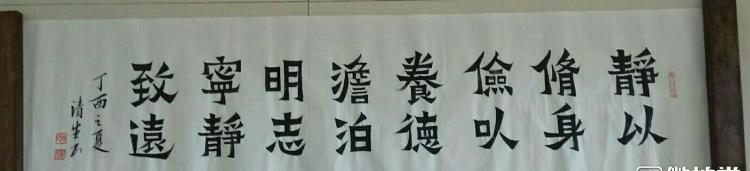 静以
脩身
儉以
養德
澹泊
明志
寧靜
致遠
丁酉之夏
清生书